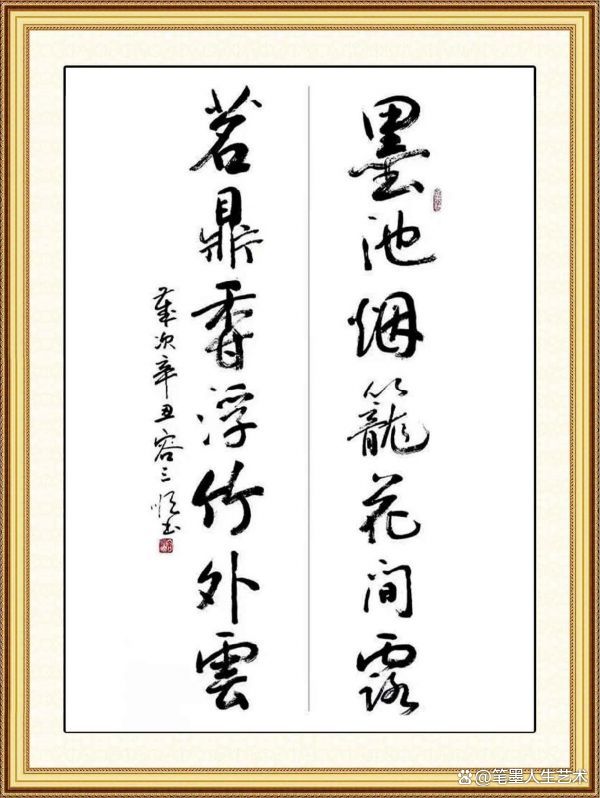 墨池烟籠花间露
茗鼎香浮竹外雲
歲次辛丑容三順书
笔墨人生艺术